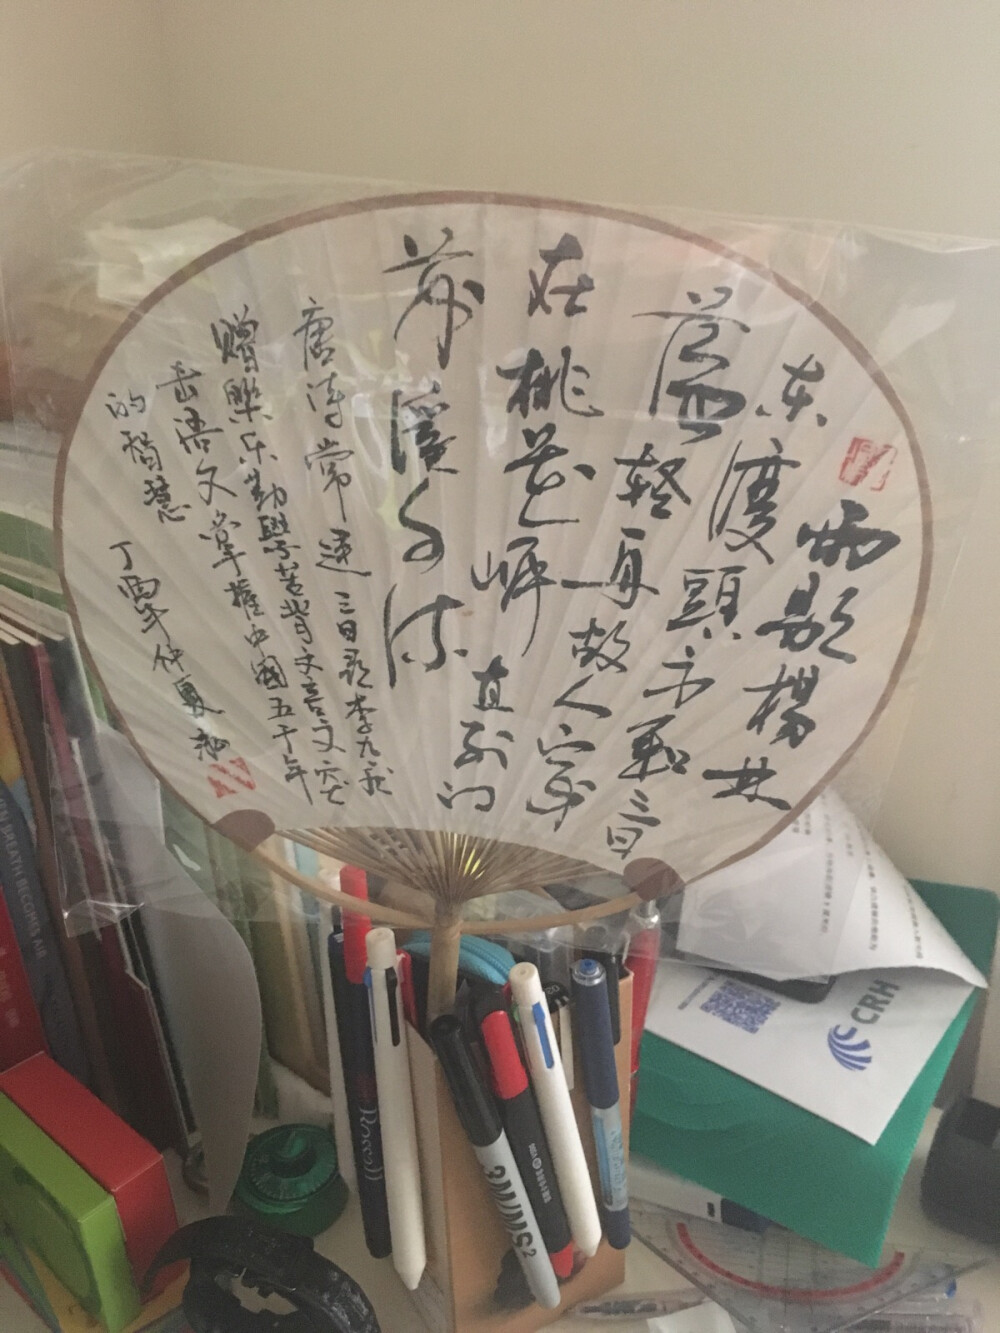 雨歇楊林
东渡頭永和三日
荡轻舟故人家
在桃花岸直到门
前溪水流
唐诗常建三日尋李九莊
赠樂乐勤學苦背文言文突
击语文掌握中國五千年
的智慧
丁酉年仲夏
BREATH BECOMES AIR
CRH